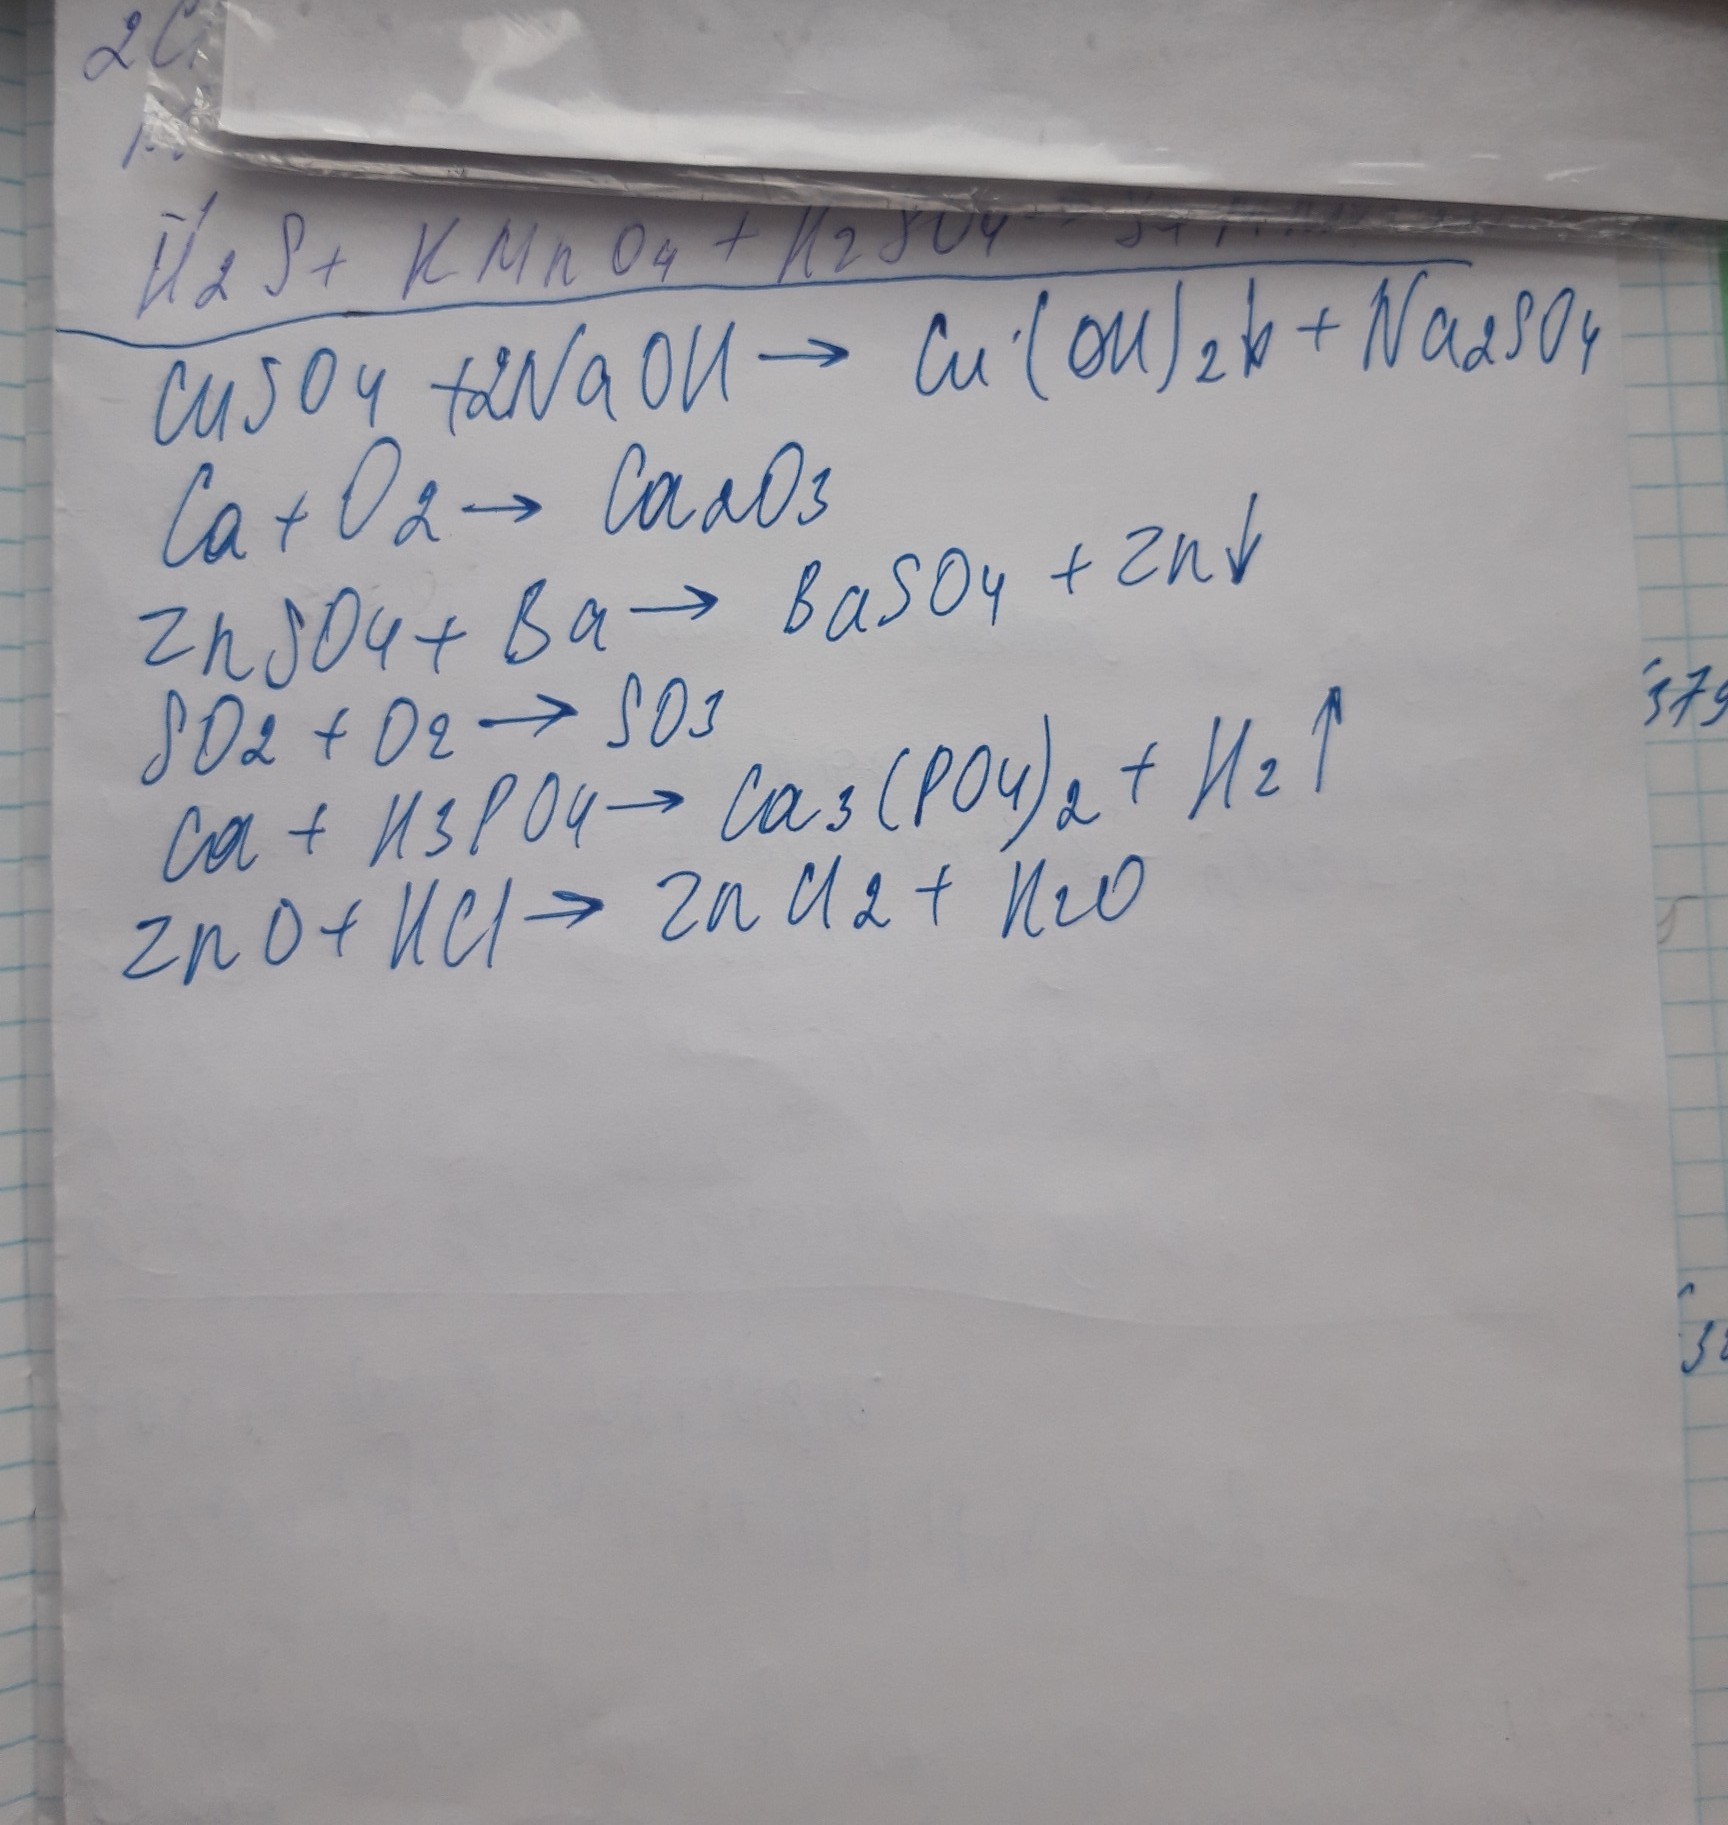 2C
H2S + KMnO4 + H2SO4 → S +
CuSO4 +2NaOH → Cu(OH)2↓ + Na2SO4
Ca + O2 → Ca2O3
ZnSO4 + Ba → BaSO4 + Zn↓
SO2 + O2 → SO3
Ca + H3PO4 → Ca3(PO4)2 + H2↑
ZnO + HCl → ZnCl2 + H2O
379